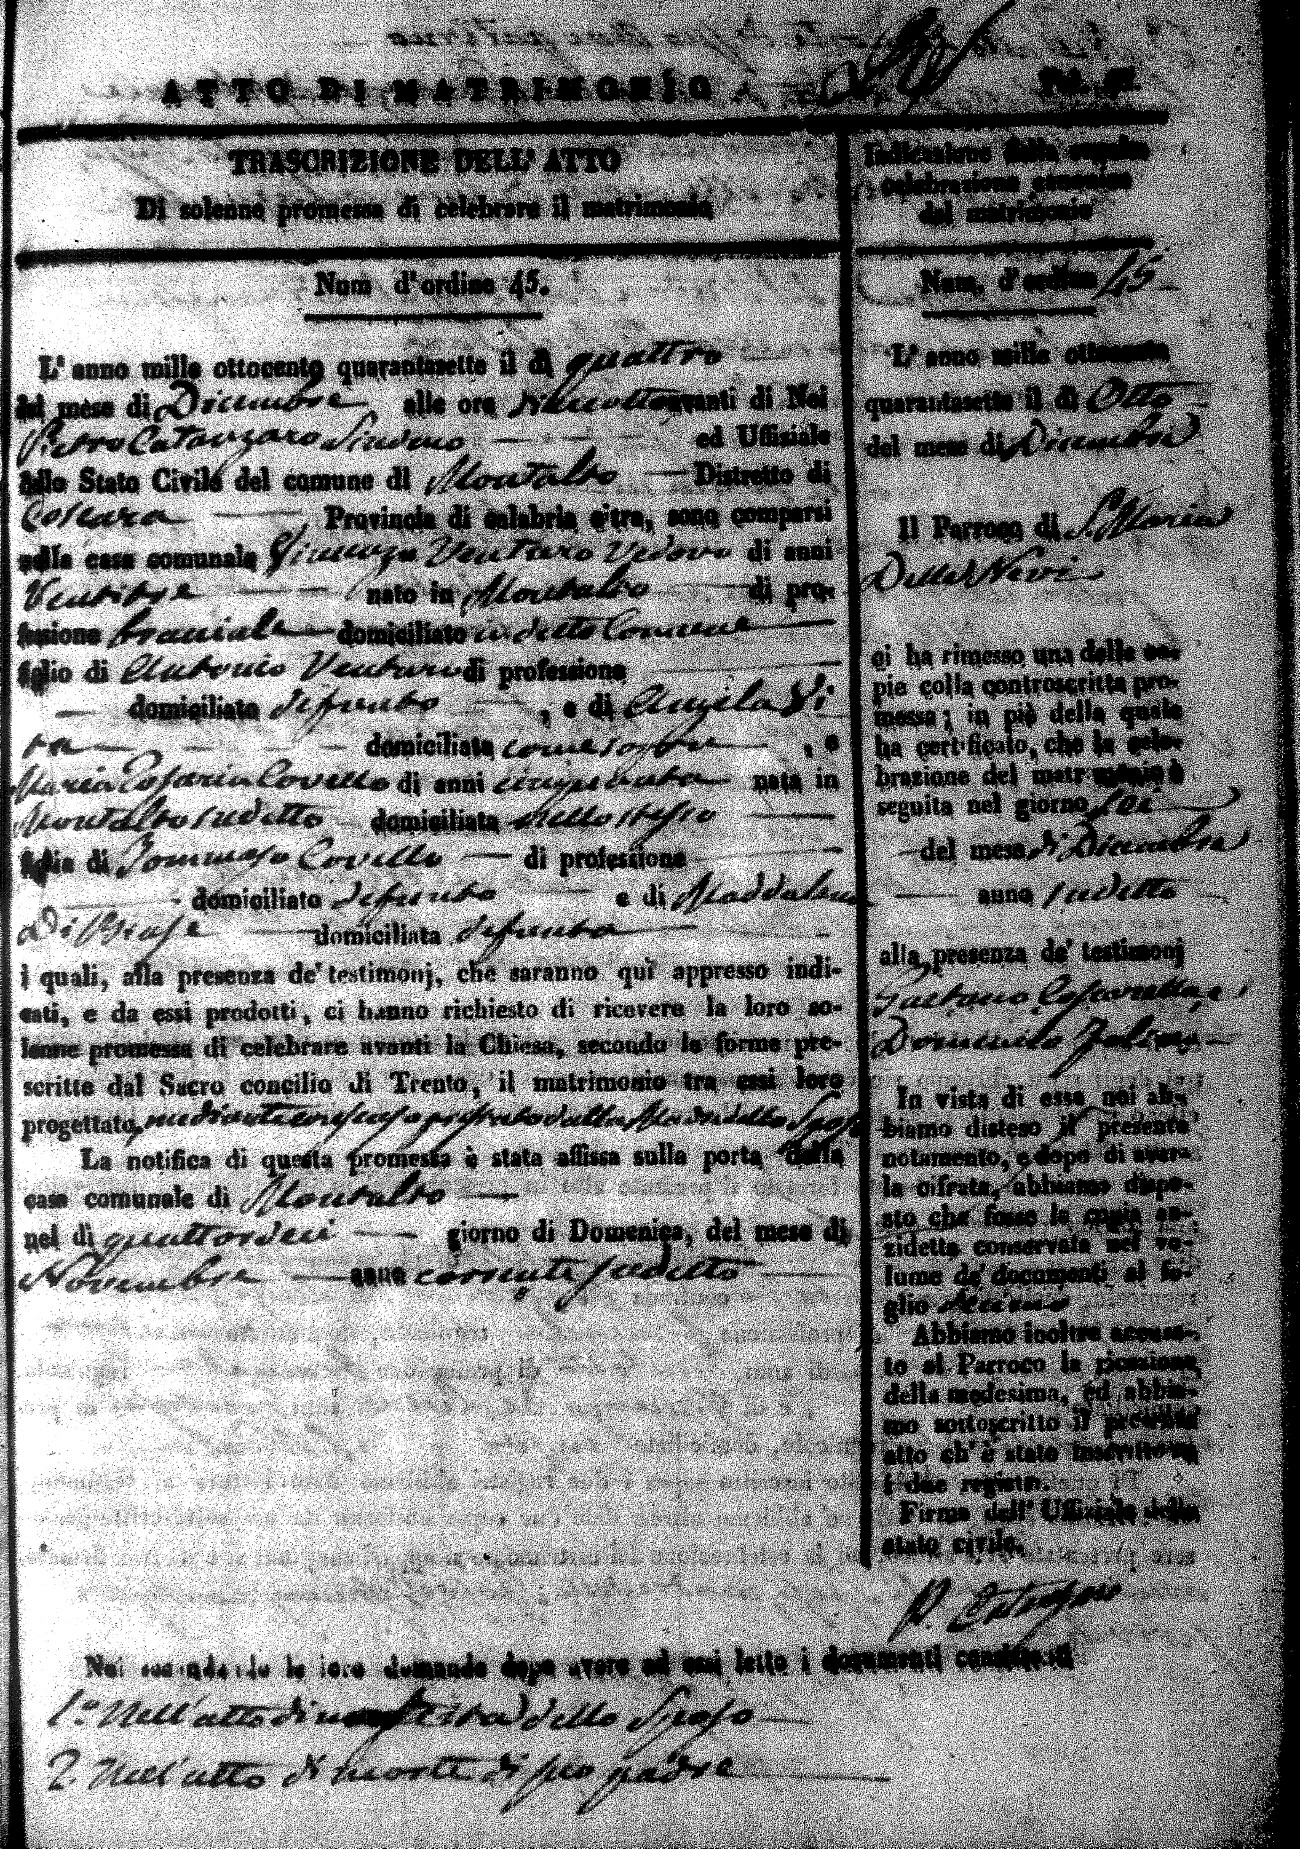 ATTO DI MATRIMONIO
TRASCRIZIONE DELL' ATTO
Di solenne promessa di celebrare il matrimonio
Num d'ordine 45.
L' anno mille ottocento quarantasette il dì quattro
del mese di Dicembre alle ore diciotto avanti di Noi
Pietro Catanzaro Sindaco ed Uffiziale
dello Stato Civile del comune di Montalto Distretto di
Cosenza Provincia di calabria citra, sono comparsi
nella casa comunale Venturo Vedovo di anni
Ventitre nato in Montalto di pro-
fessione bracciale domiciliato in detto Comune
figlio di Antonio Venturo di professione
domiciliato defunto , e di Angela Si
domiciliata come sopra , e
Maria Covello di anni nata in
Montalto sudetto domiciliata nello stesso
figlia di Tommaso Covello di professione
domiciliato defunto e di Maddalena
Di Biase domiciliata defunta
i quali, alla presenza de' testimonj, che saranno quì appresso indi-
cati, e da essi prodotti, ci hanno richiesto di ricevere la loro so-
lenne promessa di celebrare avanti la Chiesa, secondo le forme pre-
scritte dal Sacro concilio di Trento, il matrimonio tra essi loro
progettato, mediante consenso prestato dalla Madre dello Sposo
La notifica di questa promessa è stata affissa sulla porta della
casa comunale di Montalto
nel dì quattordici giorno di Domenica, del mese di
Novembre anno corrente sudetto
Indicazione della seguita
celebrazione canonica
del matrimonio
Num. d'ordine 45
L' anno mille ottocento
quarantasette il dì Otto
del mese di Dicembre
Il Parroco di S. Maria
Della Nevi
ci ha rimesso una delle co-
pie colla controscritta pro-
messa; in piè della quale
ha certificato, che la cele-
brazione del matrimonio è
seguita nel giorno sei
del mese di Dicembre
anno sudetto
alla presenza de' testimonj
Gaetano
Domenico
In vista di essa noi ab-
biamo disteso il presente
notamento, e dopo di aver-
la cifrata, abbiamo dispo-
sto che fosse la copia an-
zidetta conservata nel vo-
lume de' documenti al fo-
glio
Abbiamo inoltre accusa-
to al Parroco la ricezione
della medesima, ed abbia-
mo sottoscritto il presente
atto ch' è stato inscritto su
i due registri.
Firma dell' Uffiziale dello
stato civile.
P. Catanzaro
Noi secondando le loro domande dopo avere ad essi letto i documenti consistenti
1.º Nell'atto di nascita dello Sposo
2. Nell'atto di morte di suo padre